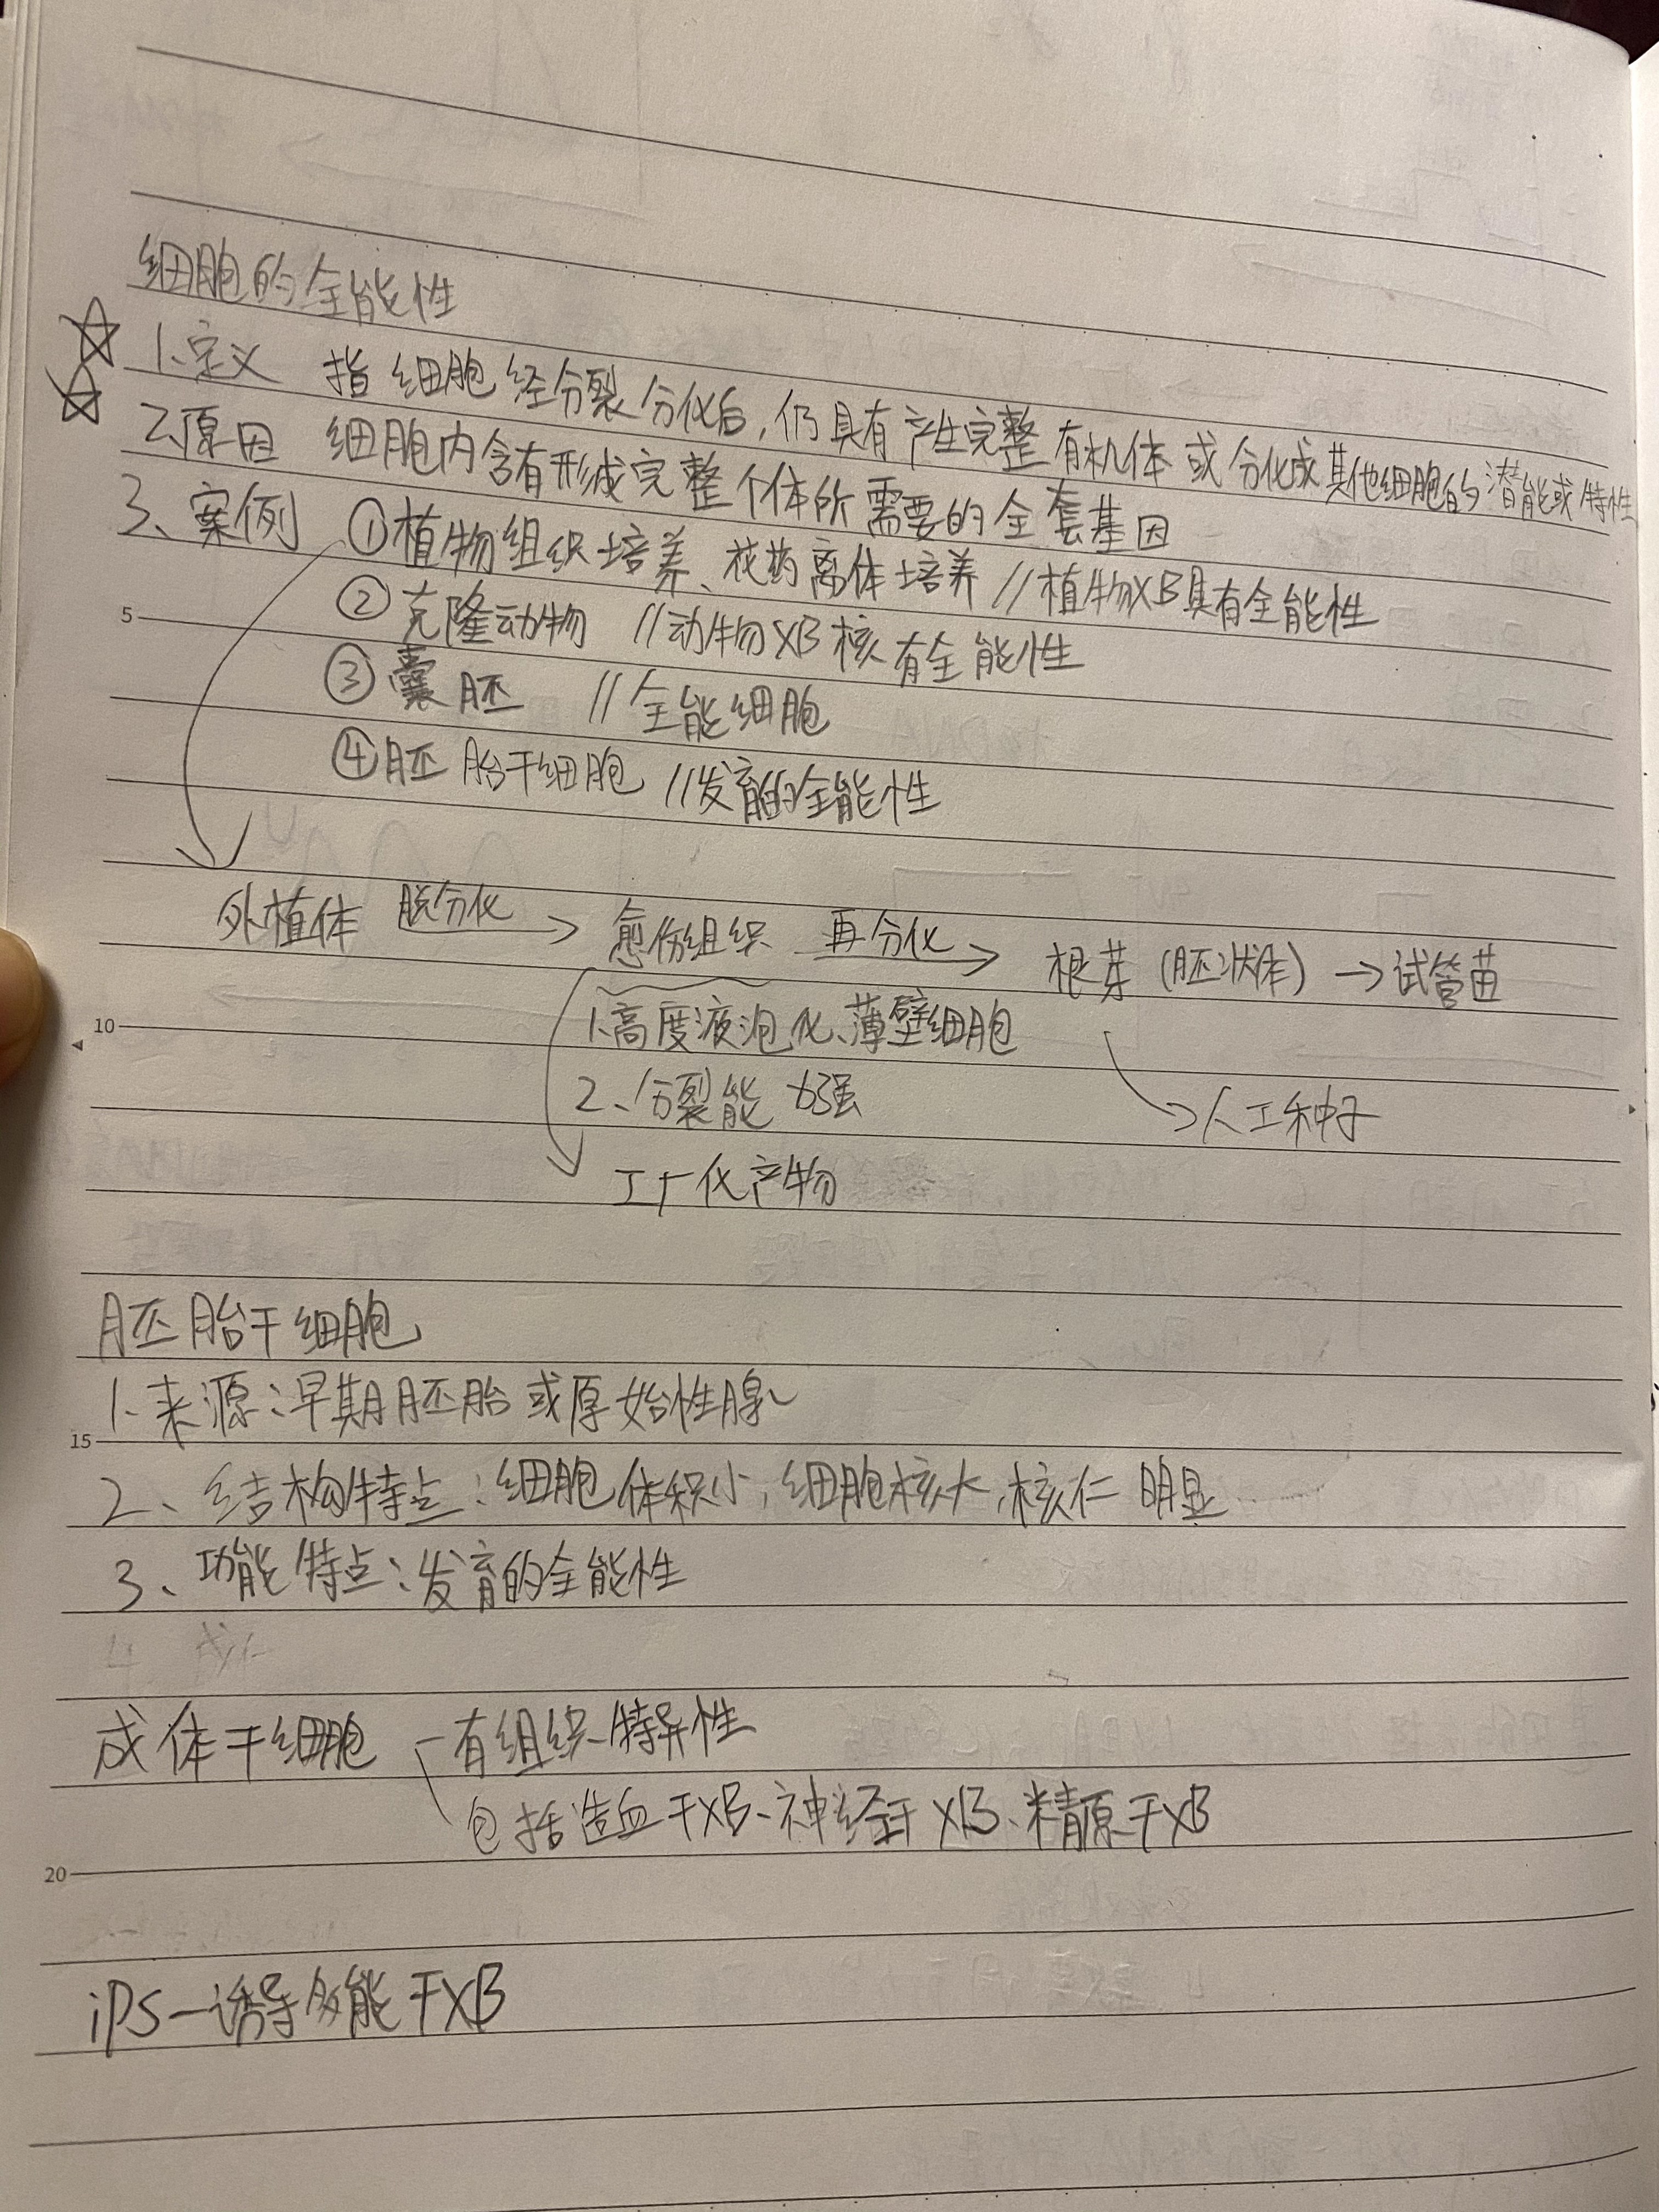 细胞的全能性
1.定义 指细胞经分裂分化后,仍具有产生完整有机体或分化成其他细胞的潜能或特性
2.原因 细胞内含有形成完整个体所需要的全套基因
3、案例 ①植物组织培养、花药离体培养 //植物XB具有全能性
②克隆动物 //动物XB核有全能性
5
③囊胚 //全能细胞
④胚胎干细胞 //发育的全能性
外植体 脱分化→ 愈伤组织 再分化→ 根芽(胚状体) →试管苗
10
1.高度液泡化、薄壁细胞
2、分裂能力强
→人工种子
工厂化产物
胚胎干细胞
1.来源:早期胚胎或原始性腺
15
2、结构特点:细胞体积小,细胞核大,核仁明显
3、功能特点:发育的全能性
成体干细胞 有组织特异性
包括造血干XB、神经干XB、精原干XB
20
iPS—诱导多能干XB